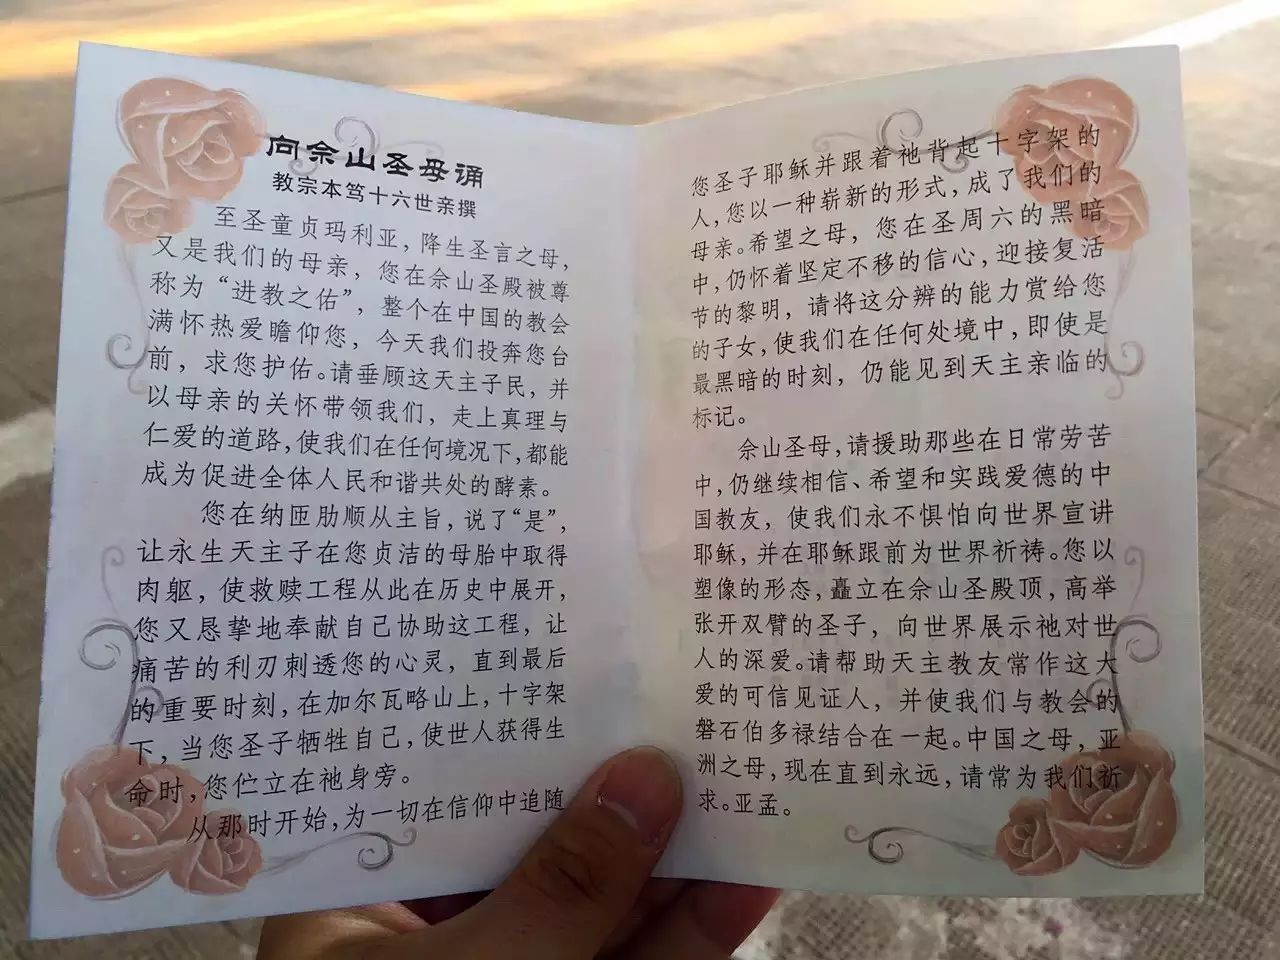 向佘山圣母诵
教宗本笃十六世亲撰
至圣童贞玛利亚，降生圣言之母，
又是我们的母亲，您在佘山圣殿被尊
称为“进教之佑”，整个在中国的教会
满怀热爱瞻仰您，今天我们投奔您台
前，求您护佑。请垂顾这天主子民，并
以母亲的关怀带领我们，走上真理与
仁爱的道路，使我们在任何境况下，都能
成为促进全体人民和谐共处的酵素。
您在纳匝肋顺从主旨，说了“是”，
让永生天主子在您贞洁的母胎中取得
肉躯，使救赎工程从此在历史中展开，
您又恳挚地奉献自己协助这工程，让
痛苦的利刃刺透您的心灵，直到最后
的重要时刻，在加尔瓦略山上，十字架
下，当您圣子牺牲自己，使世人获得生
命时，您伫立在祂身旁。
从那时开始，为一切在信仰中追随
您圣子耶稣并跟着祂背起十字架的
人，您以一种崭新的形式，成了我们的
母亲。希望之母，您在圣周六的黑暗
中，仍怀着坚定不移的信心，迎接复活
节的黎明，请将这分辨的能力赏给您
的子女，使我们在任何处境中，即使是
最黑暗的时刻，仍能见到天主亲临的
标记。
佘山圣母，请援助那些在日常劳苦
中，仍继续相信、希望和实践爱德的中
国教友，使我们永不惧怕向世界宣讲
耶稣，并在耶稣跟前为世界祈祷。您以
塑像的形态，矗立在佘山圣殿顶，高举
张开双臂的圣子，向世界展示祂对世
人的深爱。请帮助天主教友常作这大
爱的可信见证人，并使我们与教会的
磐石伯多禄结合在一起。中国之母，亚
洲之母，现在直到永远，请常为我们祈
求。亚孟。